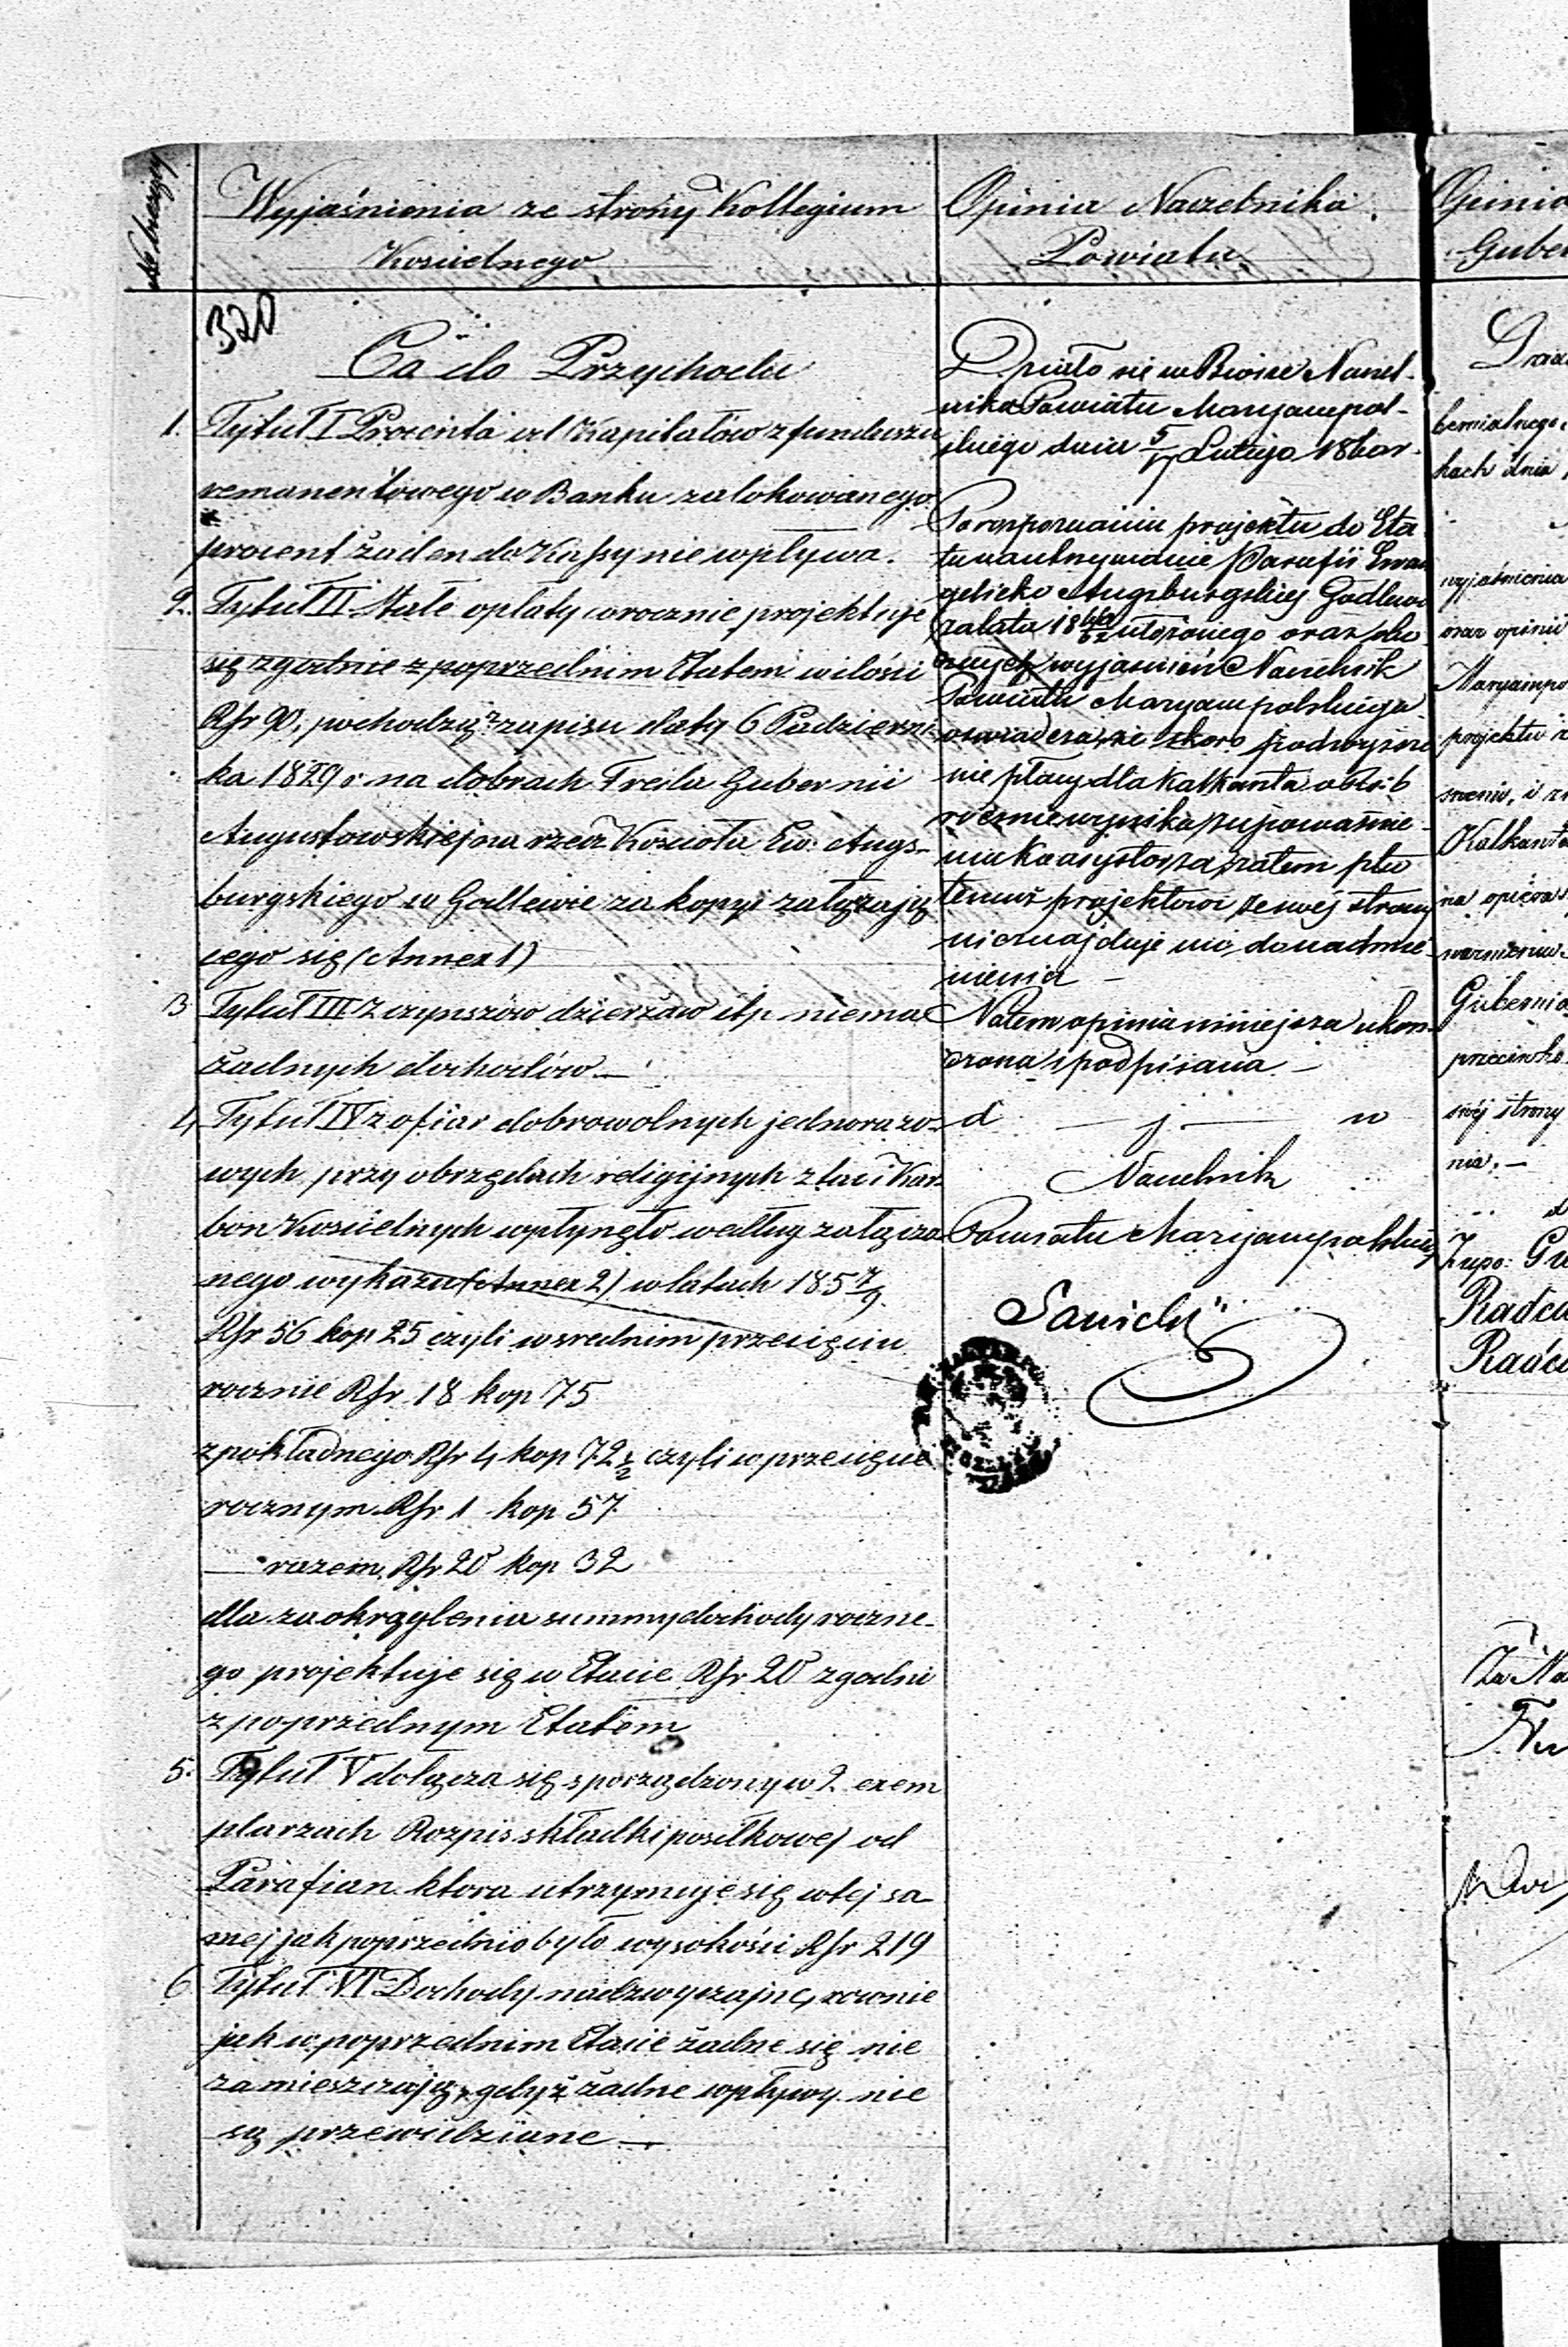 No bieżący
Wyjaśnienia ze strony Kollegium
Kościelnego
320
Co do Przychodu
1. Tytuł I Procenta od Kapitałów z funduszu
remanentowego w Banku zalokowanego
procent żaden do Kassy nie wpływa.
2. Tytuł II Stałe opłaty corocznie projektuje
się zgodnie z poprzednim Etatem w ilości
Rsr 90, pochodzą z zapisu daty 6 Październi-
ka 1829 r na dobrach Freda Gubernii
Augustowskiej na rzecz Kościoła Ew. Augs-
burgskiego w Godlewie za kopyi załączają
cego się (Annex 1)
3 Tytuł III Z czynszów dzierżaw itp niema
żadnych dochodów —
4, Tytuł IV z ofiar dobrowolnych jednorazo-
wych przy obrzędach religijnych z tac i Kar-
bon Kościelnych wpłynęło według załącza
nego wykazu (Annex 2) w latach 185 7/9
Rsr 56 kop 25 czyli w srednim przecięciu
rocznie Rsr 18 kop 75
z pokładnego Rsr 4 kop 72 1/2 czyli w przecięciu
rocznym Rsr 1 kop 57
— razem Rsr 20 kop 32
dla zaokrąglenia summy dochody roczne-
go projektuje się w Etacie Rsr 20 zgodni
z poprzednym Etatem
5. Tytuł V dołącza się sporządzony w 2 exem
plarzach Rozpis składki posiłkowej od
Parafian ktora utrzymuje się w tej sa
mej jak poprzednio było wysokości Rsr 219
6 Tytuł VI Dochody nadzwyczajne, rownie
jak w poprzednim Etacie żadne się nie
zamieszczają, gdyż żadne wpływy nie
są przewidziane —
Opinia Naczelnika
Powiatu
Działo się w Biórze Naczel-
nika Powiatu Maryampol-
skiego dnia 5/17 Lutego 186
Po rozpoznaniu projektu do Eta
tu na utrzymanie Parafii Ewan
gelicko Augsburgskiej Godlewo
za lata 18 60/62 ułożonego oraz
wyjaśnień Naczelnik
Powiatu Maryampolskiego
oswiadcza, że skoro podwyższe
nie płacy dla Kalkanta o Rsr 6
rocznie wynika z upoważnie-
nia Konsystorza, zatem
temuż projektowi ze swej strony
nieznajduje nic do nadmie-
nienia —
Na tem opinia niniejsza ukoń-
czona i podpisana —
d — j — w
Naczelnik
Powiatu Marijampolskiego
Sawicki
Opinia
Guber
Dzia
bernialnego
kach dnia
wyjaśnienia
oraz opinii
Maryampo
projektu
Kalkanta
na opiera
Gubernia
przeciwko
swej strony
nia. —
Radca
Radca